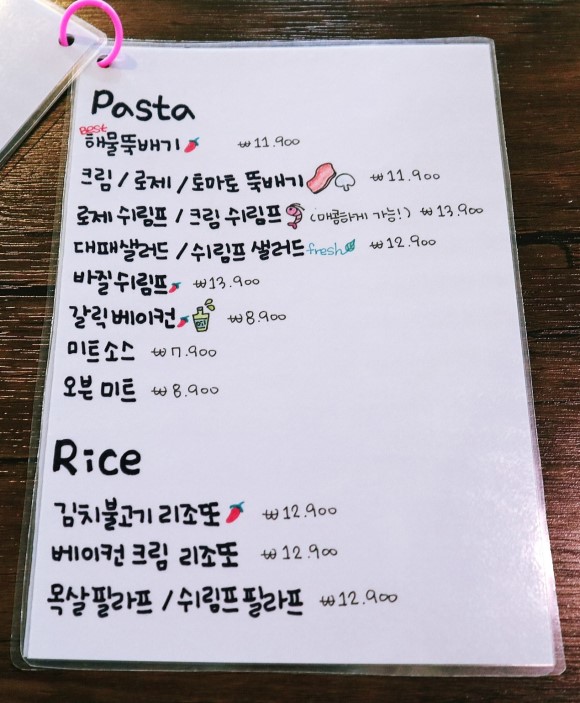 Pasta
Best
해물뚝배기 ₩11.900
크림 / 로제 / 토마토 뚝배기 ₩11.900
로제 쉬림프 / 크림 쉬림프 (매콤하게 가능!) ₩13.900
대패샐러드 / 쉬림프 샐러드 fresh ₩12.900
바질쉬림프 ₩13.900
갈릭베이컨 ₩8.900
미트소스 ₩7.900
오븐 미트 ₩8.900
Rice
김치불고기 리조또 ₩12.900
베이컨 크림 리조또 ₩12.900
목살필라프 / 쉬림프 필라프 ₩12.900